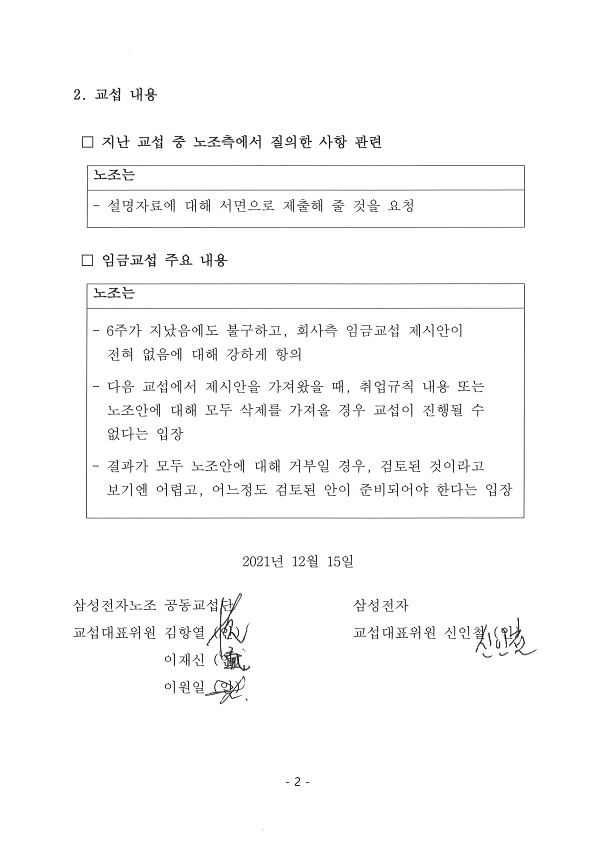 2. 교섭 내용
□ 지난 교섭 중 노조측에서 질의한 사항 관련
노조는
- 설명자료에 대해 서면으로 제출해 줄 것을 요청
□ 임금교섭 주요 내용
노조는
- 6주가 지났음에도 불구하고, 회사측 임금교섭 제시안이
전혀 없음에 대해 강하게 항의
- 다음 교섭에서 제시안을 가져왔을 때, 취업규칙 내용 또는
노조안에 대해 모두 삭제를 가져올 경우 교섭이 진행될 수
없다는 입장
- 결과가 모두 노조안에 대해 거부일 경우, 검토된 것이라고
보기엔 어렵고, 어느정도 검토된 안이 준비되어야 한다는 입장
2021년 12월 15일
삼성전자노조 공동교섭단
삼성전자
교섭대표위원 김항열 (인)
교섭대표위원 신인철 신인철
이재신
이원일 (인)
- 2 -